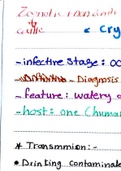 cattle
Cry
- infective stage: oo
- Diagnosis
- feature: watery
- host: one (huma
* Transmmion:-
• Drinking contaminate